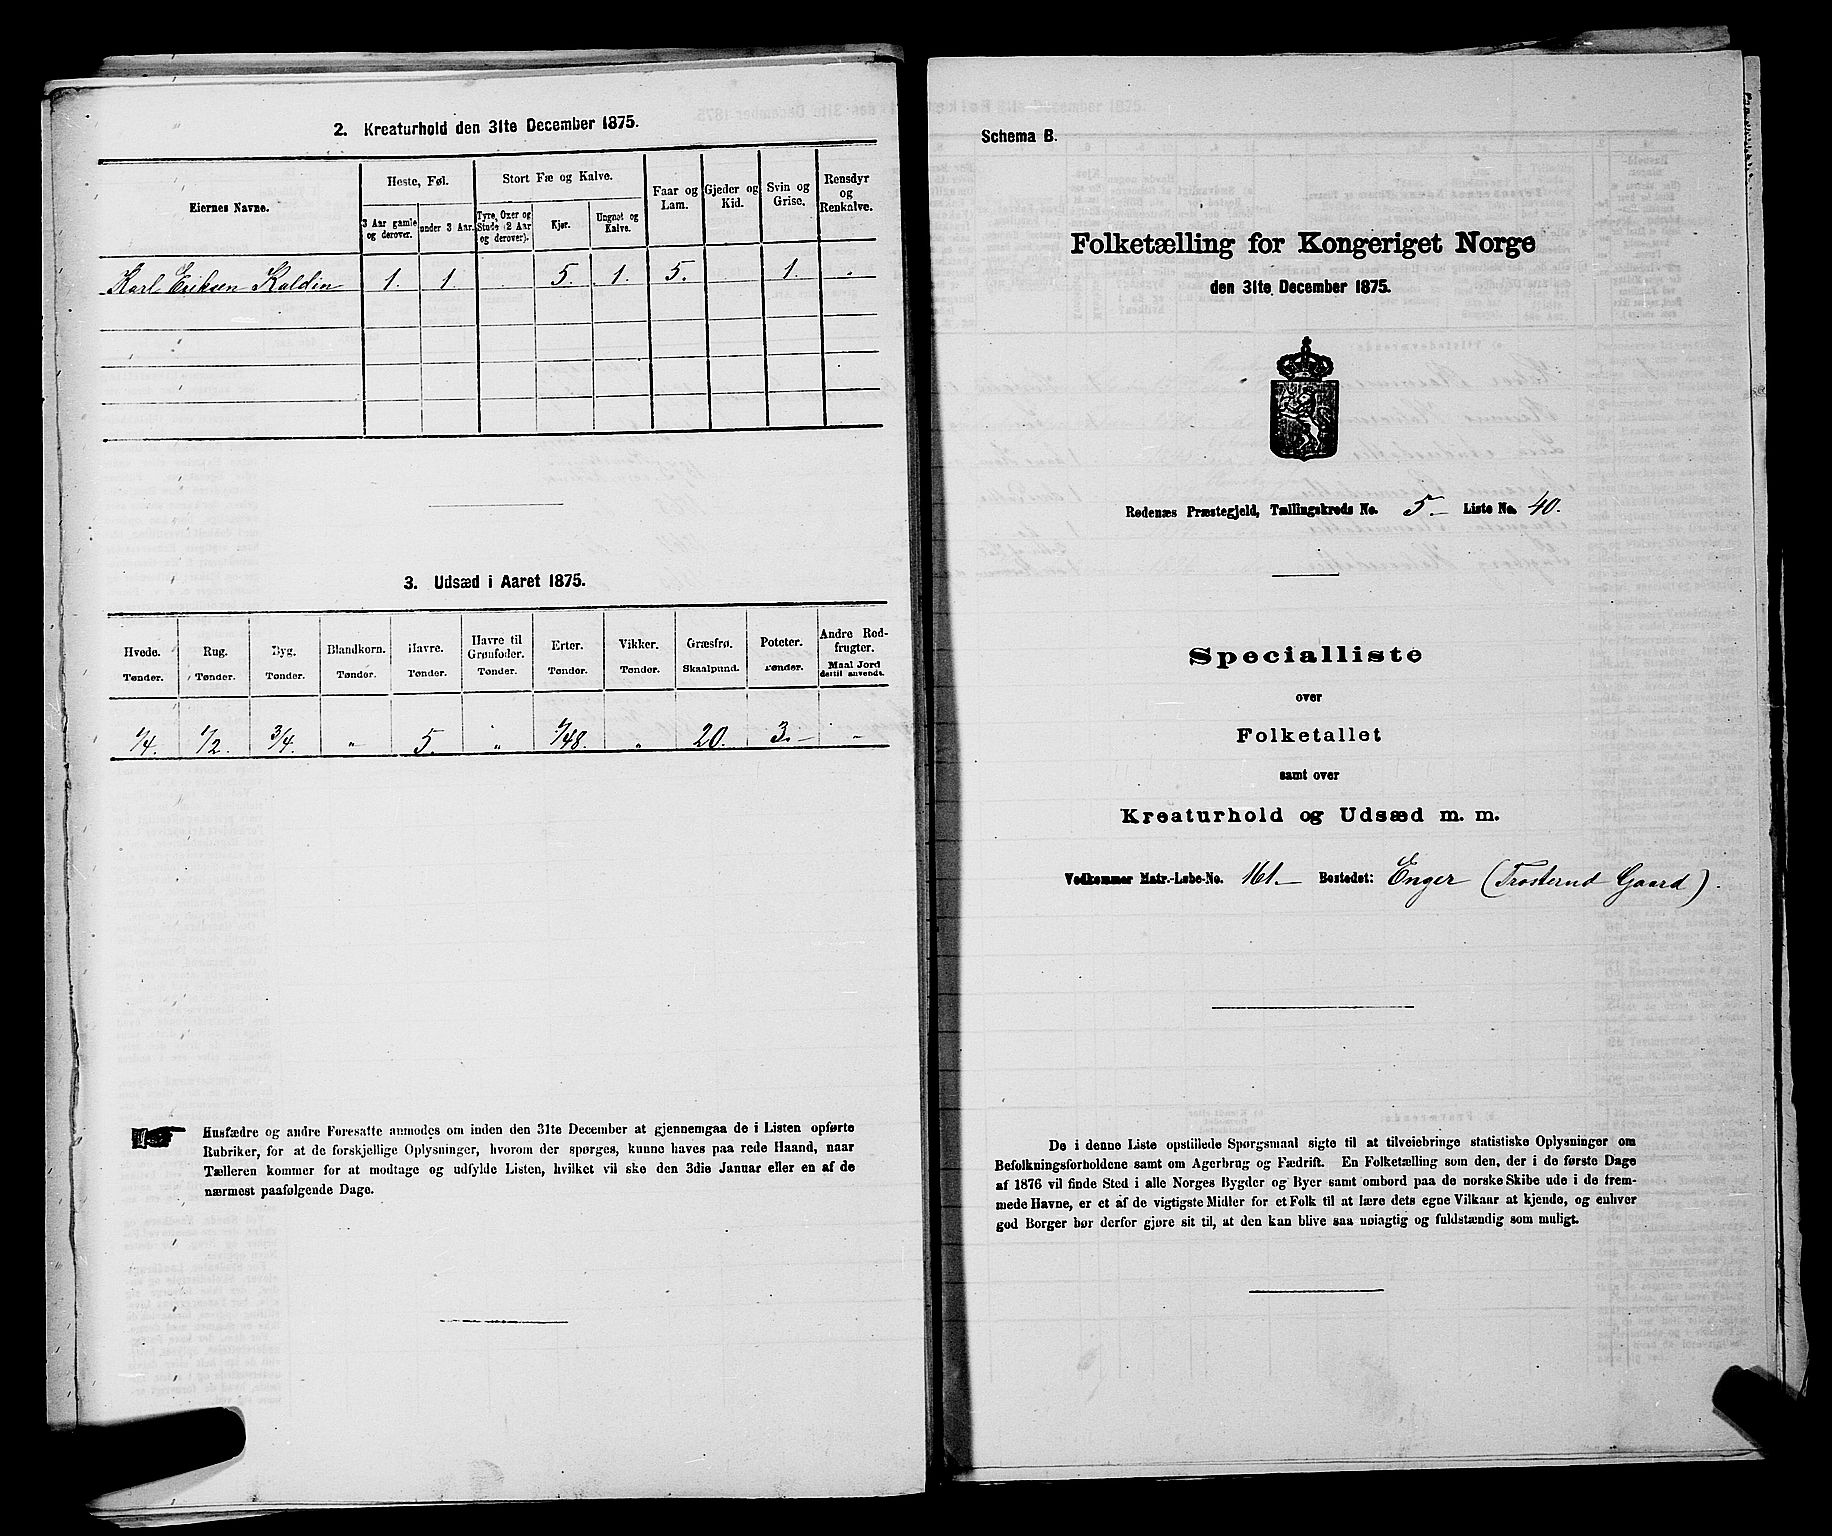 2. Kreaturhold den 31te December 1875.
Eiernes Navne.
Heste, Føl.
Stort Fæ og Kalve.
Faar og Lam.
Gjeder og Kid.
Svin og Grise.
Rensdyr og Renkalve.
3 Aar gamle og derover.
under 3 Aar.
Tyre, Oxer og Stude (2 Aar og derover).
Kjør.
Ungnøt og Kalve.
Karl Eriksen Kaldin 1. 1 . 5. 1. 5. . 1. "
3. Udsæd i Aaret 1875.
Hvede. Rug. Byg. Blandkorn. Havre. Havre til Grønfoder. Erter. Vikker. Græsfrø. Poteter. Andre Rodfrugter.
Tønder. Tønder. Tønder. Tønder. Tønder. Tønder. Tønder. Tønder. Skaalpund. Tønder. Maal Jord dertil anvendt.
1/4. 1/2. 3/4. " 5. " 1/48. " 20. 3.— "
Husfædre og andre Foresatte anmodes om inden den 31te December at gjennemgaa de i Listen opførte
Rubriker, for at de forskjellige Oplysninger, hvorom der spørges, kunne haves paa rede Haand, naar
Tælleren kommer for at modtage og udfylde Listen, hvilket vil ske den 3die Januar eller en af de
nærmest paafølgende Dage.
Schema B.
Folketælling for Kongeriget Norge
den 31te December 1875.
Rødenæs Præstegjeld, Tællingskreds No. 5— Liste No. 40.
Specialliste
over
Folketallet
samt over
Kreaturhold og Udsæd m. m.
Vedkommer Matr.-Løbe-No. 161.— Bostedet: Enger (Trosterud Gaard).
De i denne Liste opstillede Spørgsmaal sigte til at tilveiebringe statistiske Oplysninger om
Befolkningsforholdene samt om Agerbrug og Fædrift. En Folketælling som den, der i de første Dage
af 1876 vil finde Sted i alle Norges Bygder og Byer samt ombord paa de norske Skibe ude i de frem-
mede Havne, er et af de vigtigste Midler for et Folk til at lære dets egne Vilkaar at kjende, og enhver
god Borger bør derfor gjøre sit til, at den kan blive saa nøiagtig og fuldstændig som muligt.